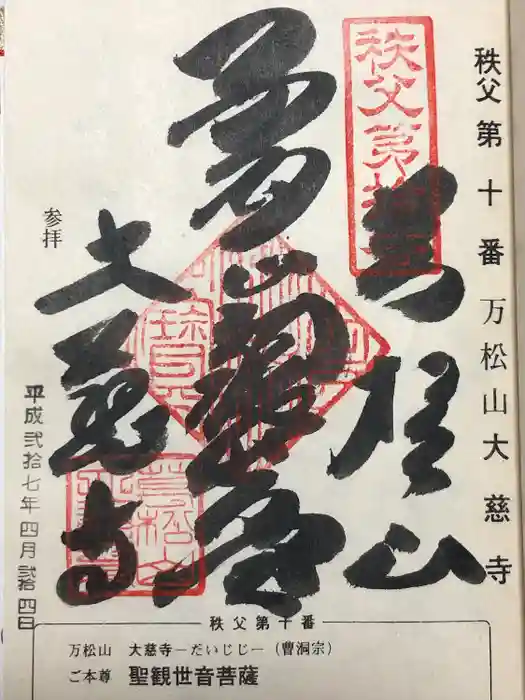 秩父第十番 万松山大慈寺
萬松山
大慈寺
参拝
平成弐拾七年四月弐拾四日
秩父第十番
万松山 大慈寺―だいじじ―(曹洞宗)
ご本尊 聖観世音菩薩